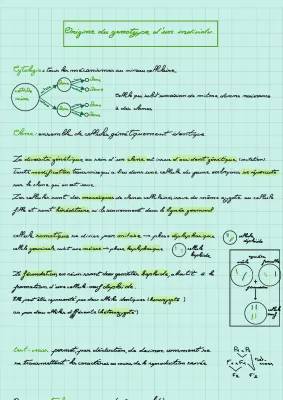 Origine du génotype d'un individu
Cytologie : tous les mécanismes au niveau cellulaire.
cellule mère
clone
clone
clone
clone
cellule qui subit succession de mitose donne naissance
à des clones
Clone : ensemble de cellule génétiquement identique
La diversité génétique au sein d'un clone est issue d'accident génétique (mutation)
Toute modification transmise qui a lieu dans une cellule du jeune embryon se répercute
sur le clone qui en est issue
Les cellules sont des mosaïques de clones cellulaires, issue de même zygote ou cellule
fille et sont héréditaire ou la surviennent dans la lignée germinale
cellule somatique se divise par mitose → phase diploïde
cellule germinale subit une méiose → phase haploïde
cellule haploïde
cellule diploïde
La fécondation en réunissant des gamètes haploïde, aboutit à la
formation d'une cellule œuf diploïde.
Elle peut être représenté par deux allèle identiques (homozygote)
ou par deux allèles différents (hétérozygote)
gamètes
mâle
femelle
+
fécondation
cellule œuf
test-cross : permet, par déduction, de
se transmettent les caractères au cours de la reproduction sexuée
P1 × P2
F1 × F1
F2
F2